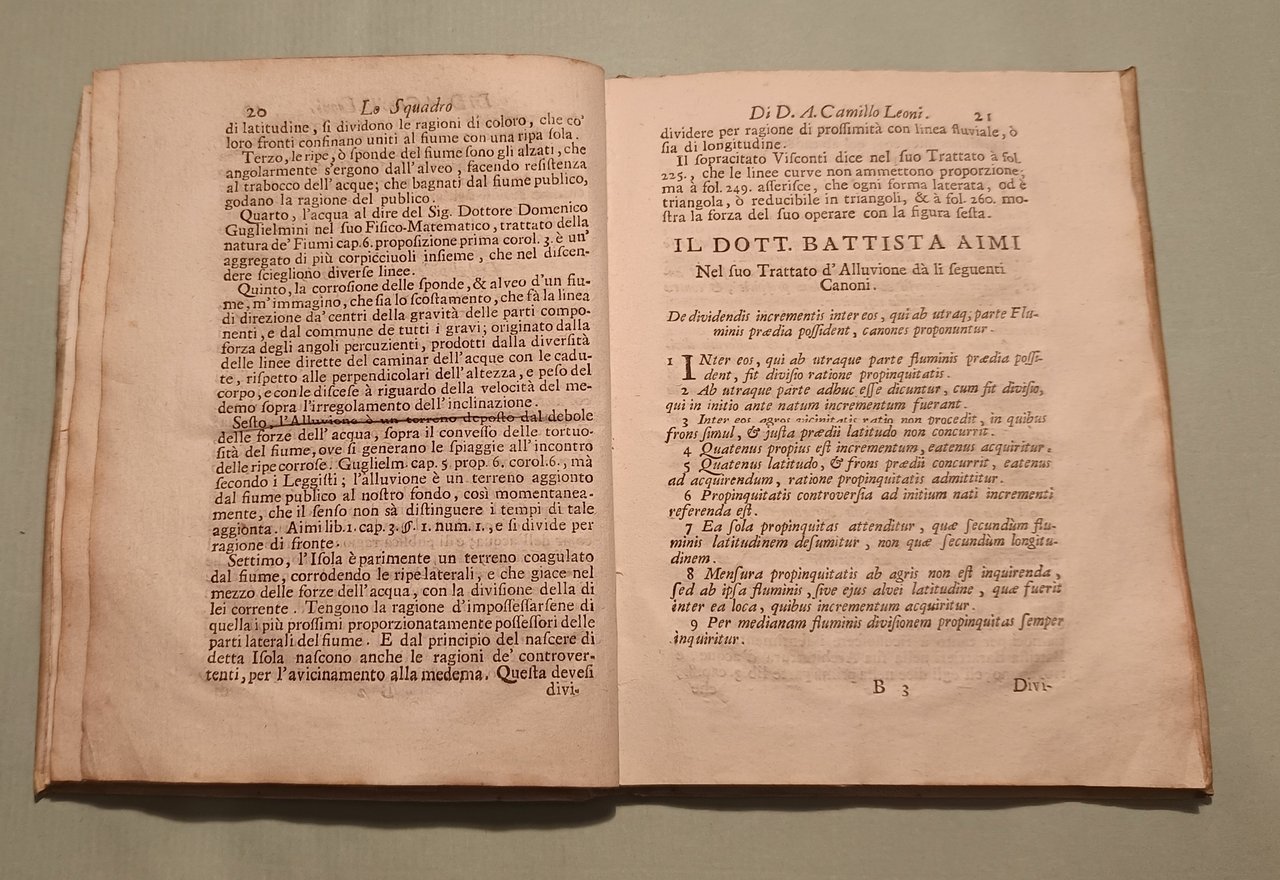 20 Lo Squadro
di latitudine, ſi dividono le ragioni di coloro, che co'
loro fronti confinano uniti al fiume con una ripa ſola.
Terzo, le ripe, ò ſponde del fiume ſono gli alzati, che
angolarmente s'ergono dall'alveo, facendo reſiſtenza
al trabocco dell'acque; che bagnati dal fiume publico,
godano la ragione del publico.
Quarto, l'acqua al dire del Sig. Dottore Domenico
Guglielmini nel ſuo Fiſico-Matematico, trattato della
natura de' Fiumi cap. 6. propoſizione prima corol. 3. è un'
aggregato di più corpicciuoli inſieme, che nel diſcen-
dere ſciegliono diverſe linee.
Quinto, la corroſione delle ſponde, & alveo d'un fiu-
me, m'immagino, che ſia lo ſcoſtamento, che fà la linea
di direzione da' centri della gravità delle parti compo-
nenti, e dal commune de tutti i gravi; originato dalla
forza degli angoli percuzienti, prodotti dalla diverſità
delle linee dirette del caminar dell'acque con le cadu-
te, riſpetto alle perpendicolari dell'altezza, e peſo del
corpo, e con le diſceſe à riguardo della velocità del me-
demo ſopra l'irregolamento dell'inclinazione.
Seſto, l'Alluvione è un terreno depoſto dal debole
delle forze dell'acqua, ſopra il conveſſo delle tortuo-
ſità del fiume, ove ſi generano le ſpiaggie all'incontro
delle ripe corroſe. Guglielm. cap. 5. prop. 6. corol. 6., mà
ſecondo i Leggiſti; l'alluvione è un terreno aggionto
dal fiume publico al noſtro fondo, così momentanea-
mente, che il ſenſo non sà diſtinguere i tempi di tale
aggionta. Aimi lib. 1. cap. 3. §. 1. num. 1., e ſi divide per
ragione di fronte.
Settimo, l'Iſola è parimente un terreno coagulato
dal fiume, corrodendo le ripe laterali, e che giace nel
mezzo delle forze dell'acqua, con la diviſione della di
lei corrente. Tengono la ragione d'impoſſeſſarſene di
quella i più proſſimi proporzionatamente poſſeſſori delle
parti laterali del fiume. E dal principio del naſcere di
detta Iſola naſcono anche le ragioni de' controver-
tenti, per l'avicinamento alla medema. Queſta deveſi
divi-
Di D. A. Camillo Leoni. 21
dividere per ragione di proſſimità con linea fluviale, ò
ſia di longitudine.
Il ſopracitato Viſconti dice nel ſuo Trattato à fol.
225., che le linee curve non ammettono proporzione;
ma à fol. 249. aſſeriſce, che ogni forma laterata, od è
triangola, ò reducibile in triangoli, & à fol. 260. mo-
ſtra la forza del ſuo operare con la figura ſeſta.
IL DOTT. BATTISTA AIMI
Nel ſuo Trattato d'Alluvione dà li ſeguenti
Canoni.
De dividendis incrementis inter eos, qui ab utraq; parte Flu-
minis prædia poſſident, canones proponuntur.
1 INter eos, qui ab utraque parte fluminis prædia poſſi-
dent, fit diviſio ratione propinquitatis.
2 Ab utraque parte adhuc eſſe dicuntur, cum fit diviſio,
qui in initio ante natum incrementum fuerant.
3 Inter eos agros vicinitatis ratio non procedit, in quibus
frons ſimul, & juſta prædii latitudo non concurrit.
4 Quatenus propius eſt incrementum, eatenus acquiritur.
5 Quatenus latitudo, & frons prædii concurrit, eatenus
ad acquirendum, ratione propinquitatis admittitur.
6 Propinquitatis controverſia ad initium nati incrementi
referenda eſt.
7 Ea ſola propinquitas attenditur, quæ ſecundùm flu-
minis latitudinem deſumitur, non quæ ſecundùm longitu-
dinem.
8 Menſura propinquitatis ab agris non eſt inquirenda,
ſed ab ipſa fluminis, ſive ejus alvei latitudine, quæ fuerit
inter ea loca, quibus incrementum acquiritur.
9 Per medianam fluminis diviſionem propinquitas ſemper
inquiritur.
B 3 Divi-